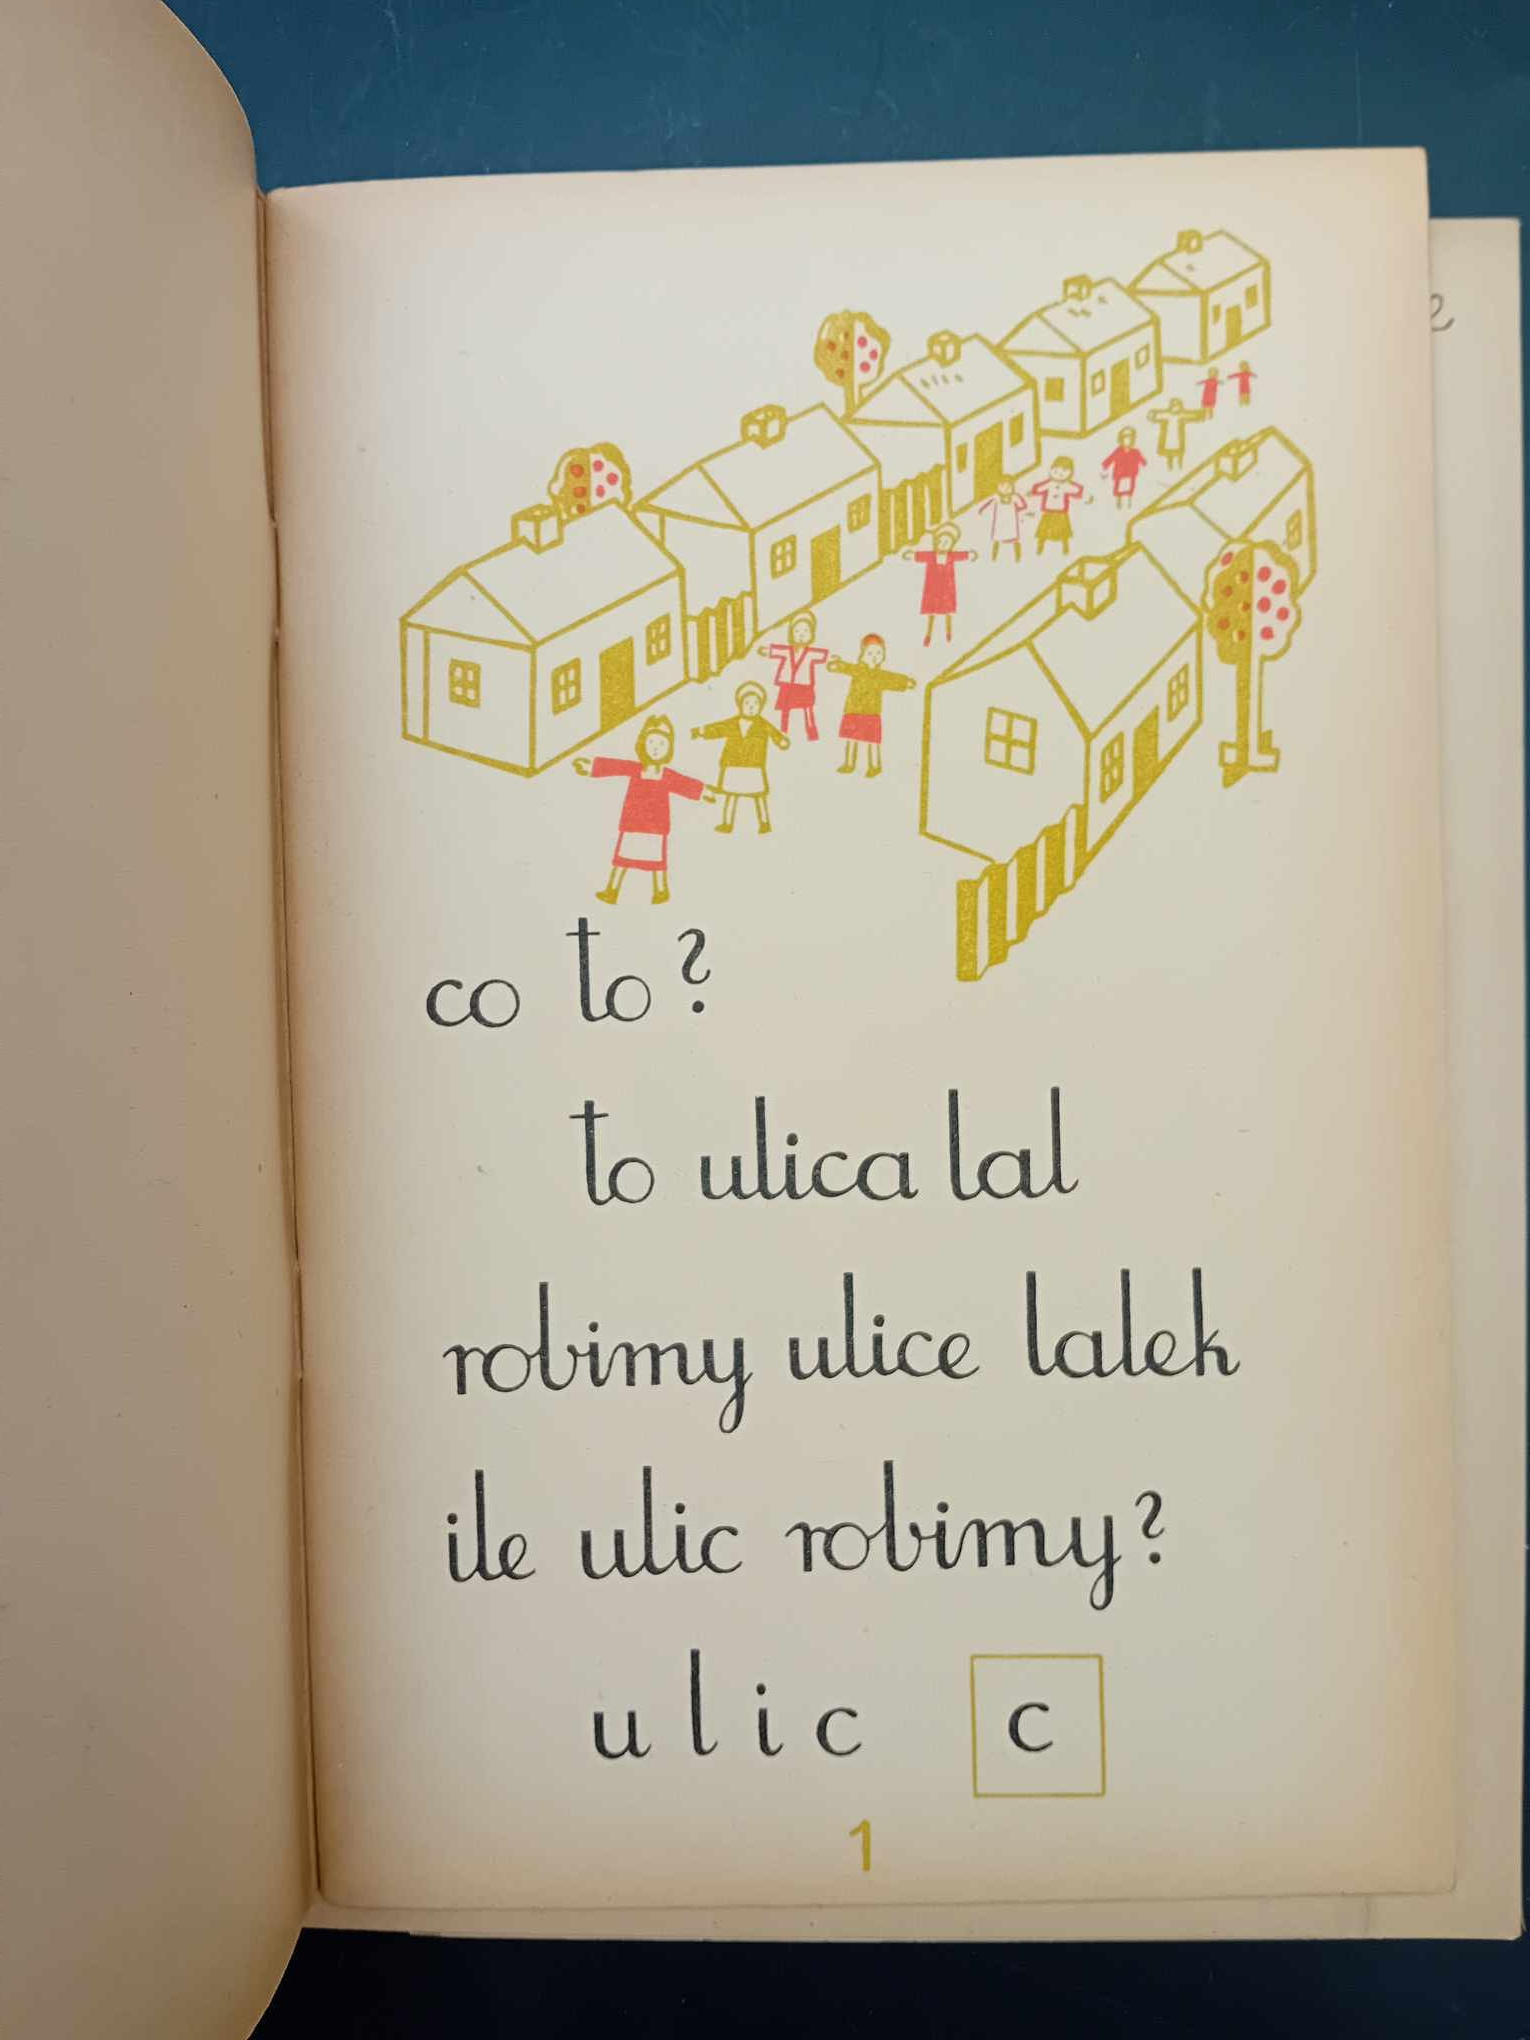 co to?
to ulica lal
robimy ulice lalek
ile ulic robimy?
u l i c c
1
e